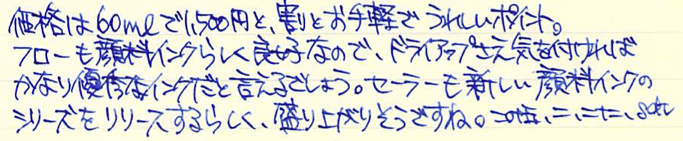 価格は60mlで1,500円と、割とお手軽でうれしいポイント。
フローも顔料インクらしく良好なので、ドライアップさえ気を付ければ
かなり優秀なインクだと言えるでしょう。セーラーも新しい顔料インクの
シリーズをリリースするらしく、盛り上がりそうですね。